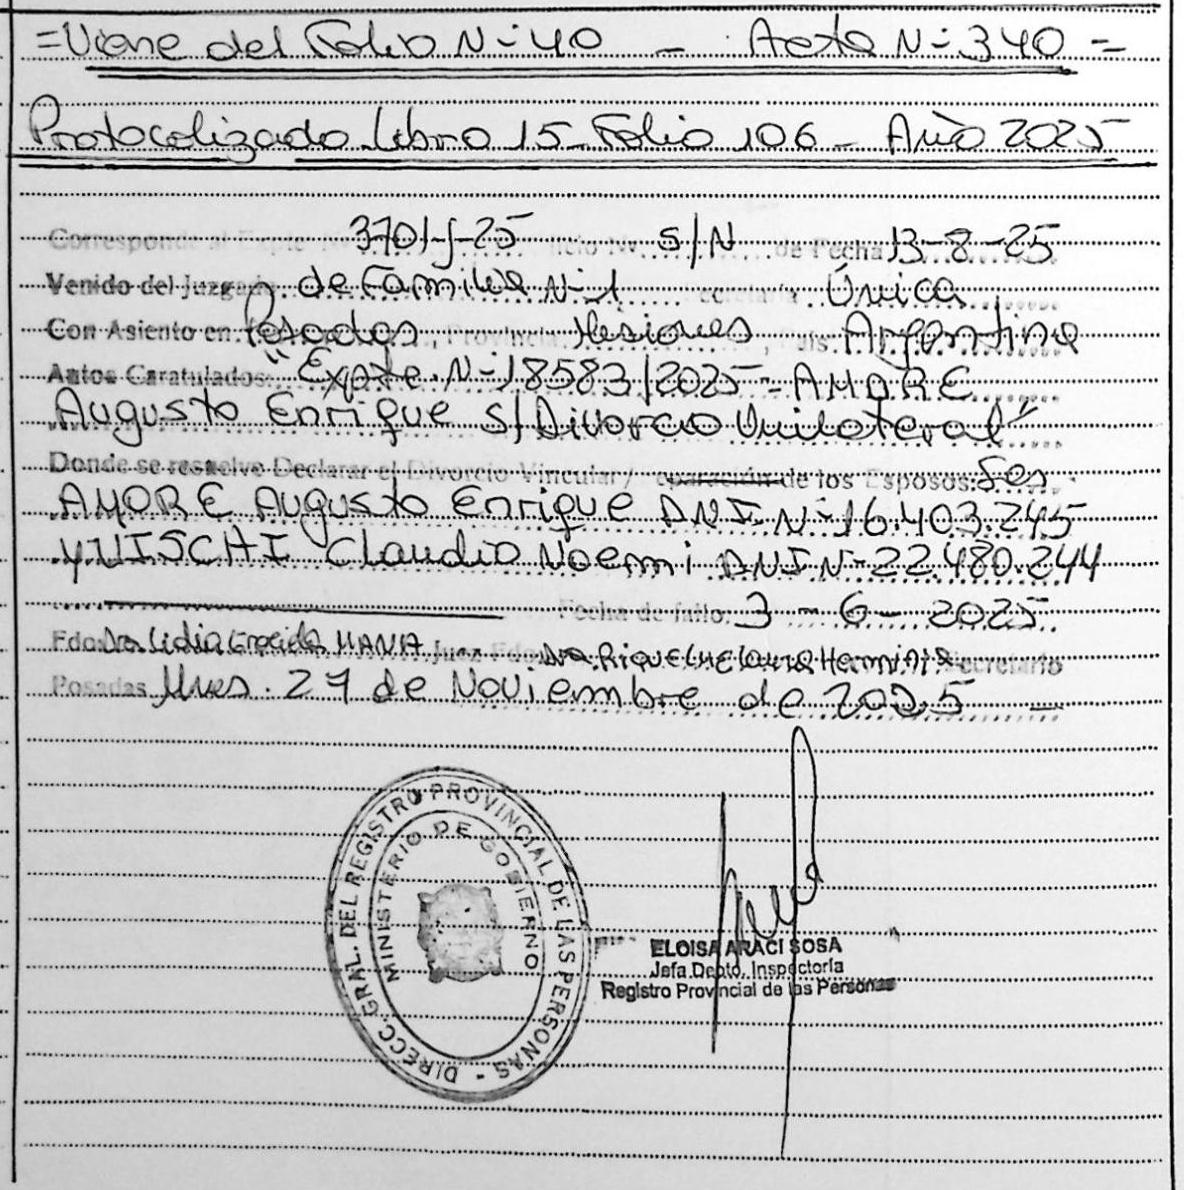 =Viene del Folio N-40 - Acta N-340=
Protocolizado Libro 15-Folio 106- Año 2025
Corresponde al Expte. N 3701-J-25 S/N de Fecha 13-8-25
Venido del Juzgado de Familia N-1 Secretaría Única
Con Asiento en Posadas, Provincia Misiones, País Argentina
Autos Caratulados: "Expte. N-18583/2025-AMORE
Augusto Enrique S/Divorcio Unilateral"
Donde se resuelve Declarar el Divorcio Vincular/ eparación de los Esposos: Ses
AMORE Augusto Enrique DNI N-16.403.245
y VISCHI Claudia Noemi DNI N-22.480.244
Fecha de fallo: 3-6-2025
Fdo: Dra Lidia Juez Fdo: Dra RIQUELME Laura Herminia Secretario
Posadas Mnes. 27 de Noviembre de 2025
DIRECC. GRAL. DEL REGISTRO PROVINCIAL DE LAS PERSONAS -
MINISTERIO DE GOBIERNO
ELOISA ARACI SOSA
Jefa Depto. Inspectoría
Registro Provincial de las Personas